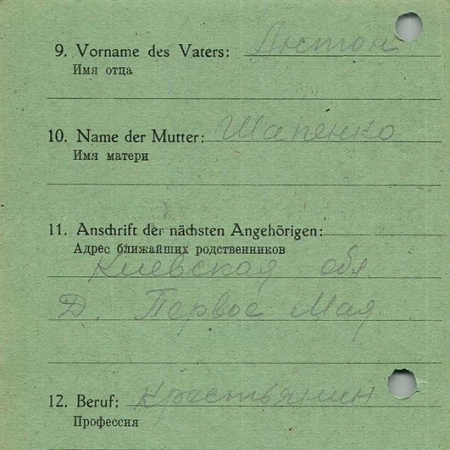 9. Vorname des Vaters: Антон
Имя отца
10. Name der Mutter: Шапенко
Имя матери
11. Anschrift der nächsten Angehörigen:
Адрес ближайших родственников
Киевская обл.
Д. Первое Мая
12. Beruf: Крестьянин
Профессия